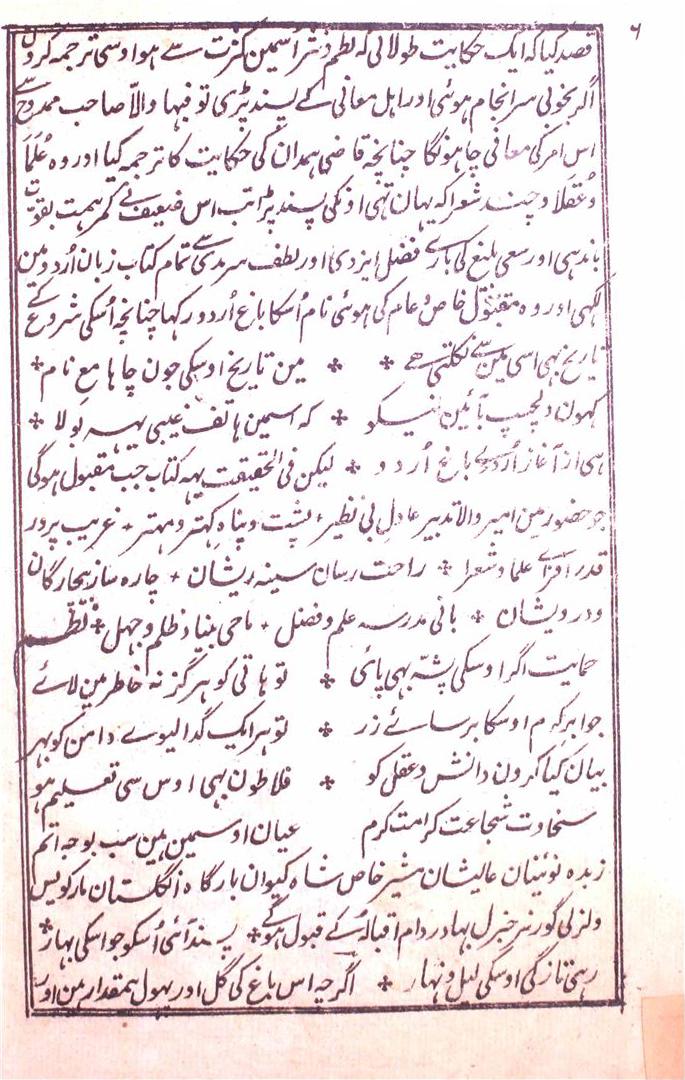 ٦
قصد کیا کہ ایک حکایت طولانی کہ نظم و نثر اسمین کثرت سے ہو اوسی ترجمہ کرون
اگر بخوبی سرانجام ہوئی اور اہل معانی کے پسند پڑی تو فبہا والّا صاحب ممدوح سے
اس امر کی معافی چاہونگا چنانچہ قاضی ہمدان کی حکایت کا ترجمہ کیا اور وہ عُلَمَا
و عُقَلا و چند شعرا کہ یہان تہی اونکی پسند پڑا تب اس ضعیف نے کمر ہمت بقوت
باندہی اور سعی بلیغ کی بارے فضل ایزدی اور لطف سرمدی سے تمام کتاب زبان اُردو مین
لکہی اور وہ مقبول خاص و عام کی ہوئی نام اُسکا باغ اُردو رکہا چنانچہ اُسکی شروع کے
تاریخ بہی اسی مین سے نکلتی ہے ٭ ٭ مین تاریخ اوسکی جون چاہا مع نام ٭
کہون دلچسپ بآئین نیکو ٭ کہ اسمین ہاتف غیبی یہہ بولا ٭
ہی از آغاز اُردوے باغ اُردو ٭ لیکن فی الحقیقت یہہ کتاب جب مقبول ہوگی
جو حضور مین امیر والا تدبیر عادل بی نظیر ٭ پشت و پناہ کہتر و مہتر ٭ غریب پرور
قدر افزاے علما و شعرا ٭ راحت رسان سینہ ریشان ٭ چارہ ساز بیچارگان
و درویشان ٭ بانی مدرسہ علم و فضل ٭ ماحی بنیاد ظلم و جہل ٭ نظم
حمایت اگر اوسکی پشّہ بہی پائی ٭ تو ہاتی کو ہرگز نہ خاطر مین لائے
جو ابر کرم اوسکا برسائے زر ٭ تو ہر ایک گدا لیوے دامن کو بہر
بیان کیا کرون دانش و عقل کو ٭ فلاطون بہی اوس سی تعلیم ہو
سخاوت شجاعت کرامت کرم عیان اوسمین ہین سب بوجہ اتم
زبدہ نوئینان عالیشان مشیر خاص شاہ کیوان بارگاہ انگلستان مارکویس
ولزلی گورنر جنرل بہادر دام اقبالہٗ کے قبول ہوگے ٭ پسند آئی اُسکو جو اسکی بہار ٭
رہی تازگی اوسکی لیل و نہار ٭ اگرچہ اس باغ کی گل اور پہول بمقدار ہین اور